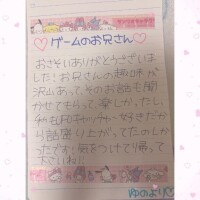 ゲームのお兄さん
おさそいありがとうございま
した！お兄さんの趣味が
沢山あって、そのお話も聞
かせてもらって、楽しかったし、
も好きだか
ら話盛り上がってたのしか
ったです！気をつけて帰って
下さいね！！
ゆのより